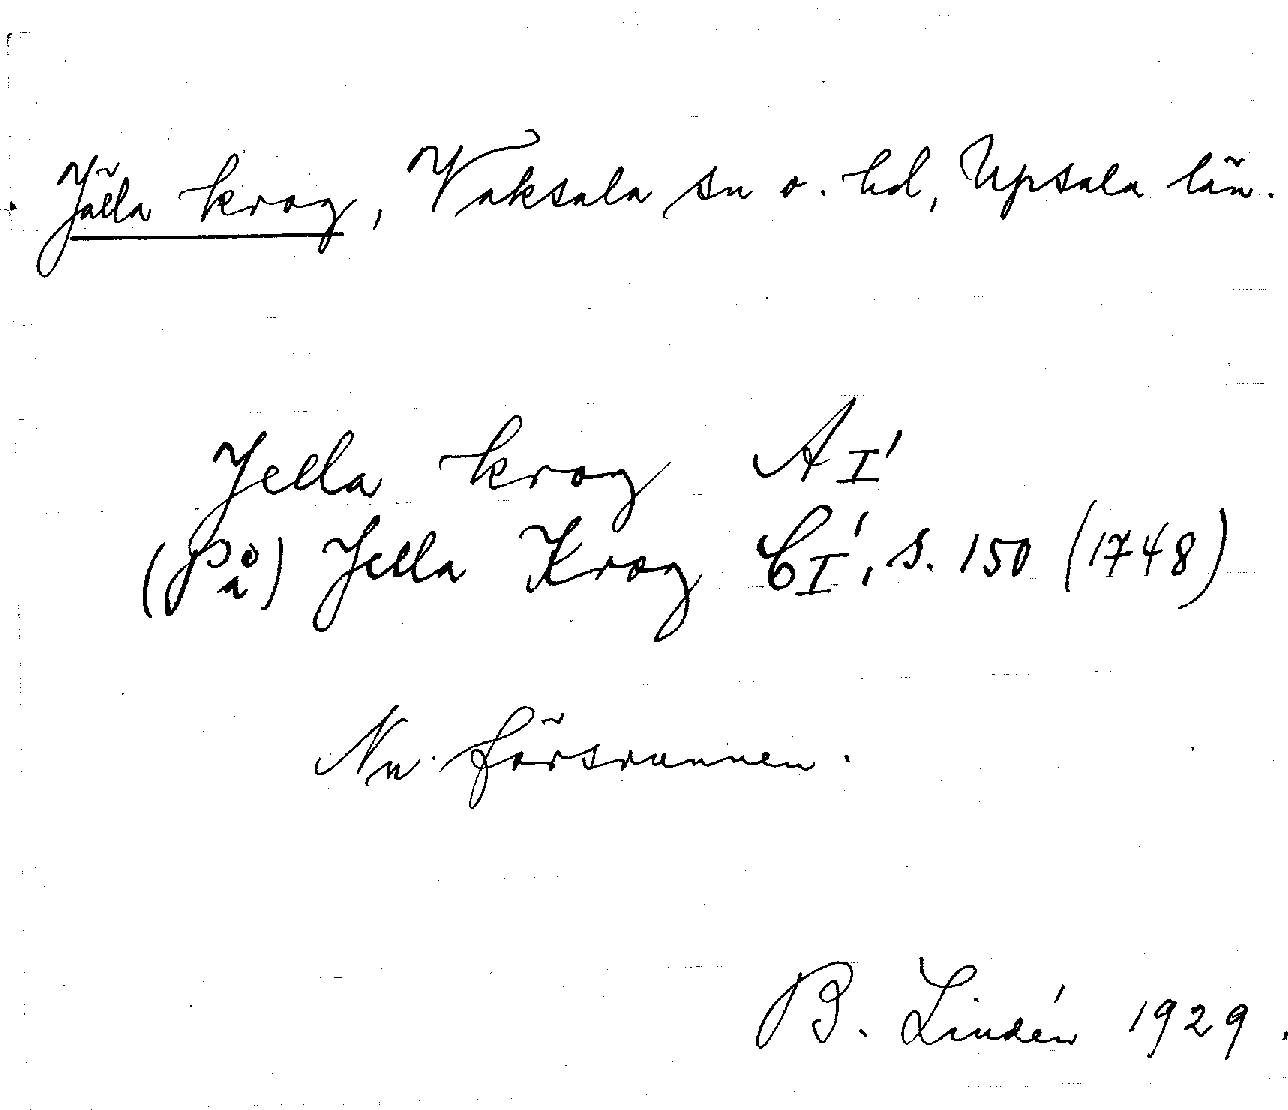 Jälla krog, Vaksala sn o. hd, Upsala län.
Jella krog A I'
(På) Jella Krog C I', s. 150 (1748)
Nu försvunnen.
B. Lindén 1929.